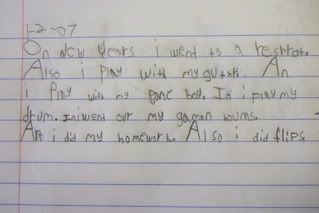 1-2-07
On New Years i went to a restrot.
Also i Play with my An
i Play with my boy. In i play my
drum. In i went our my
An i did my homework. Also i did flips